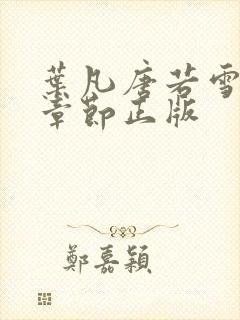 葉凡唐若雪
章節正版
鄭嘉穎